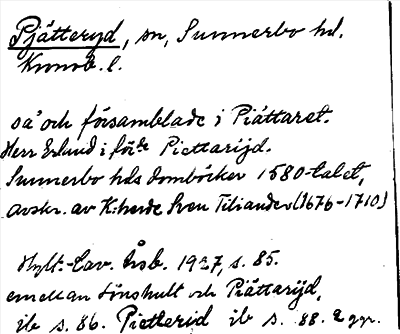 Pjätteryd, sn, Sunnerbo hd.
Kronob. l.
så och församblade i Piättaret.
Herr Erlund i förbe Piettarijd.
Sunnerbo hds domböcker 1580-talet,
avskr. av K:herde Sven Tiliander (1676-1710)
Hylt.-Cav. Årsb. 1927, s. 85.
emellan Lönshult och Piättarijd,
ib s. 86. Pietterid ib s. 88. 2 ggr.